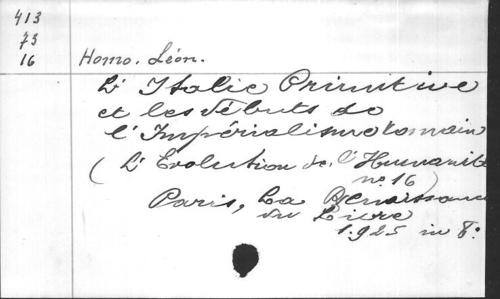 413
73
16
Homo. Léon.
L'Italie Primitive
et les débuts de
l'Impérialisme romain
(L'Evolution de l'Humanité
no 16)
Paris, La Renaissance
du Livre
1925 in 8: